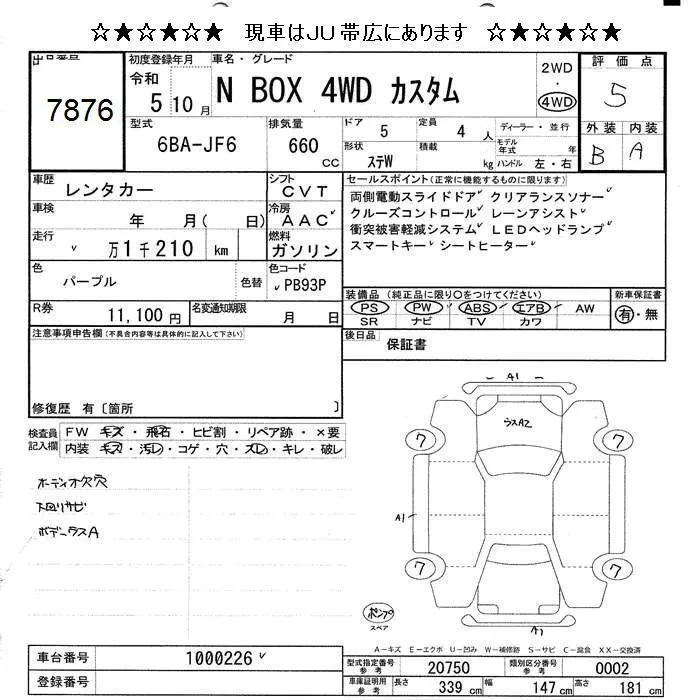 ☆★☆★☆★ 現車はJU帯広にあります ☆★☆★☆★
出品番号
7876
初度登録年月
令和
5 10 月
車名・グレード
N BOX 4WD カスタム
2WD
・
4WD
評価点
5
型式
6BA-JF6
排気量
660
CC
ドア
5
定員
4 人
ディーラー・並行
形状
ステW
積載
kg
モデル年式
年
ハンドル 左・右
外装 内装
B A
車歴
レンタカー
シフト
CVT
車検
年 月( 日)
冷房
AAC
走行
万1千210 km
燃料
ガソリン
色
パープル
色替
色コード
PB93P
R券
11,100 円
名変通知期限
月 日
セールスポイント(正常に機能するものに限ります)
両側電動スライドドア クリアランスソナー
クルーズコントロール レーンアシスト
衝突被害軽減システム LEDヘッドランプ
スマートキー シートヒーター
装備品 (純正品に限り○をつけてください)
PS PW ABS エアB AW
SR ナビ TV カワ
新車保証書
有・無
後日品
保証書
注意事項申告欄(不具合内容等は具体的に記入して下さい)
修復歴 有〔箇所 〕
検査員記入欄
FW キズ・飛石・ヒビ割・リペア跡・×要
内装 キズ・汚レ・コゲ・穴・スレ・キレ・破レ
オーディオ欠穴
下回りサビ
ボデーラスA
A1
ラスA2
7
7
A1
7
7
ポンプ
スペア
A1
A-キズ E-エクボ U-凹み W-補修跡 S-サビ C-腐食 XX-交換済
車台番号
1000226
登録番号
型式指定番号
参考
20750
類別区分番号
参考
0002
車庫証明用
参考
長さ
339 cm
幅
147 cm
高さ
181 cm